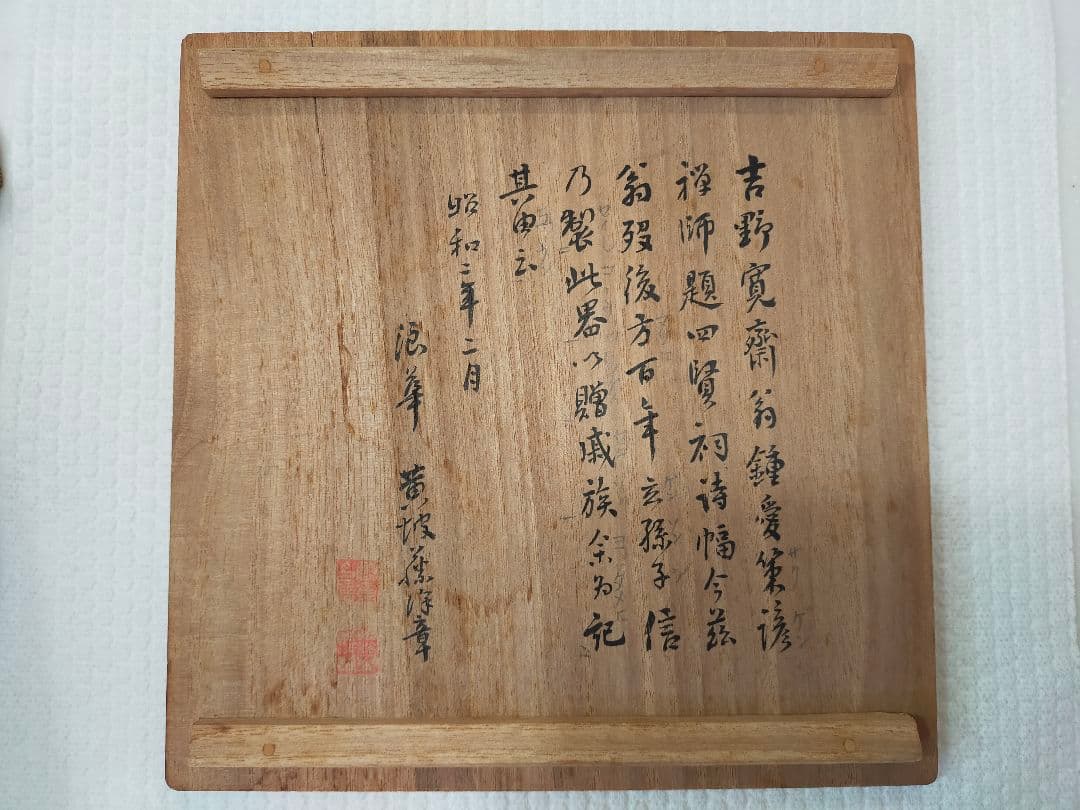 吉野寛齋翁鍾愛策諺
禅師題四賢祠詩幅今茲
翁歿後方百年玄孫子信
乃製此器以贈戚族余為記
其由云
昭和二年二月
浪華 黄坡藤澤章